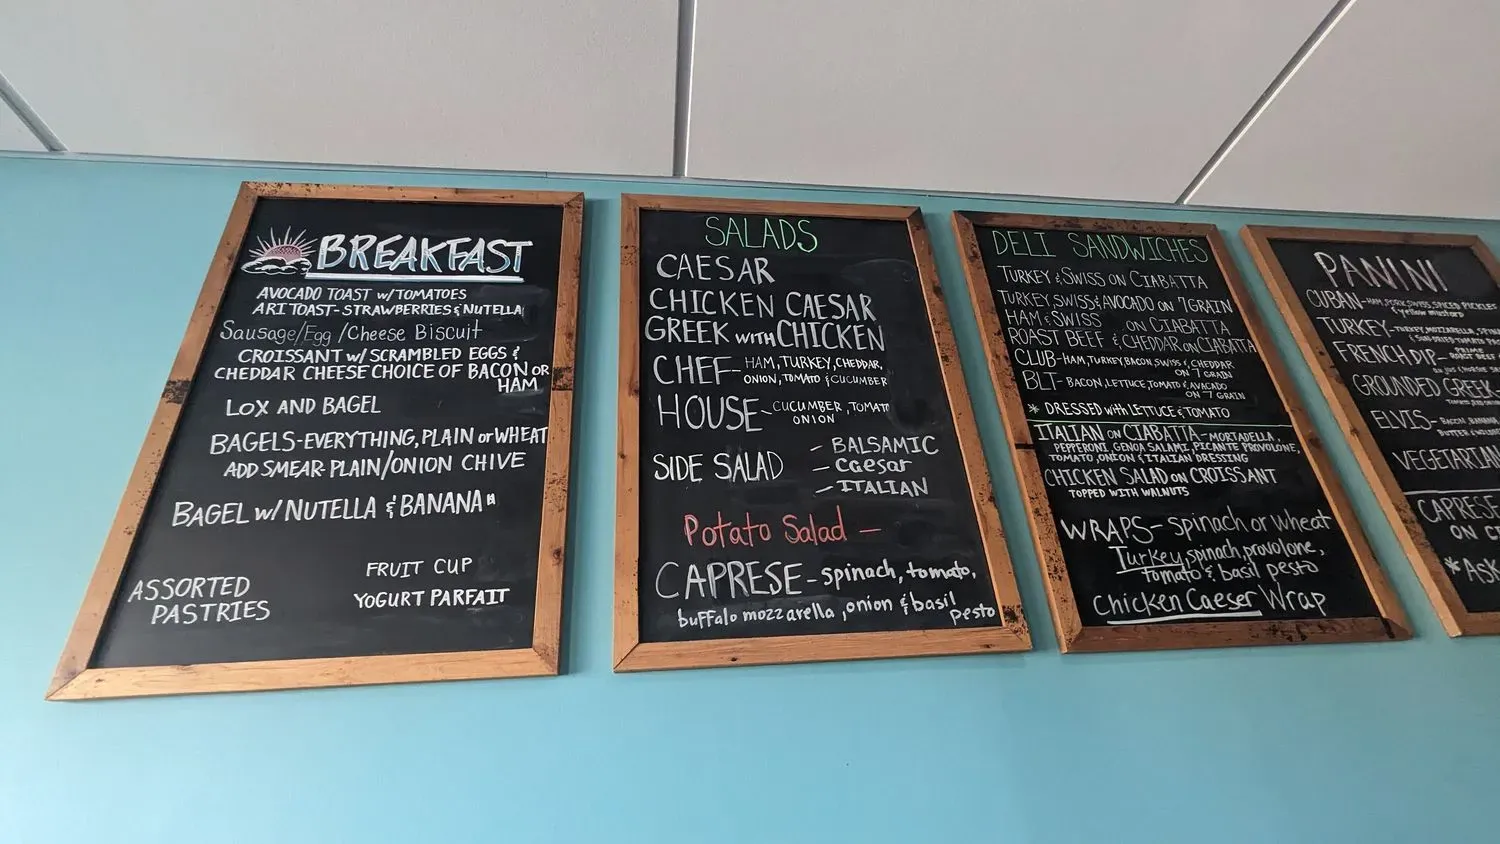 BREAKFAST
AVOCADO TOAST w/TOMATOES
ARI TOAST-STRAWBERRIES & NUTELLA
Sausage/Egg/Cheese Biscuit
CROISSANT w/ SCRAMBLED EGGS &
CHEDDAR CHEESE CHOICE OF BACON OR
HAM
LOX AND BAGEL
BAGELS-EVERYTHING, PLAIN or WHEAT
ADD SMEAR PLAIN/ONION CHIVE
BAGEL w/ NUTELLA & BANANA
FRUIT CUP
ASSORTED
PASTRIES
YOGURT PARFAIT
SALADS
CAESAR
CHICKEN CAESAR
GREEK WITH CHICKEN
CHEF-HAM, TURKEY, CHEDDAR,
ONION, TOMATO & CUCUMBER
HOUSE-CUCUMBER, TOMATO
ONION
SIDE SALAD
- BALSAMIC
- Caesar
- ITALIAN
Potato Salad -
CAPRESE-spinach, tomato,
buffalo mozzarella, onion & basil
pesto
DELI SANDWICHES
TURKEY & SWISS ON CIABATTA
TURKEY, SWISS & AVOCADO ON 7 GRAIN
HAM & SWISS ON CIABATTA
ROAST BEEF & CHEDDAR ON CIABATTA
CLUB-HAM, TURKEY, BACON, SWISS & CHEDDAR
ON 7 GRAIN
BLT-BACON, LETTUCE, TOMATO & AVOCADO
ON 7 GRAIN
* DRESSED WITH LETTUCE & TOMATO
ITALIAN ON CIABATTA-MORTADELLA,
PEPPERONI, GENOA SALAMI, PICANTE PROVOLONE,
TOMATO, ONION & ITALIAN DRESSING
CHICKEN SALAD ON CROISSANT
TOPPED WITH WALNUTS
WRAPS-spinach or wheat
Turkey, spinach, provolone,
tomato & basil pesto
Chicken Caeser Wrap
PANINI
CUBAN-HAM, PORK, SWISS, SPICED PICKLES
& yellow mustard
TURKEY-TURKEY, MOZZARELLA,
& SUN-DRIED TOMATO
FRENCH DIP-PRIME
ROAST BEEF
GROUNDED GREEK-
ELVIS-BACON, BANANA,
BUTTER &
VEGETARIAN
CAPRESE
ON
*Ask